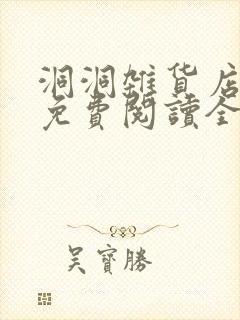 洞洞雑貨店
免費閱讀全
吴寶勝